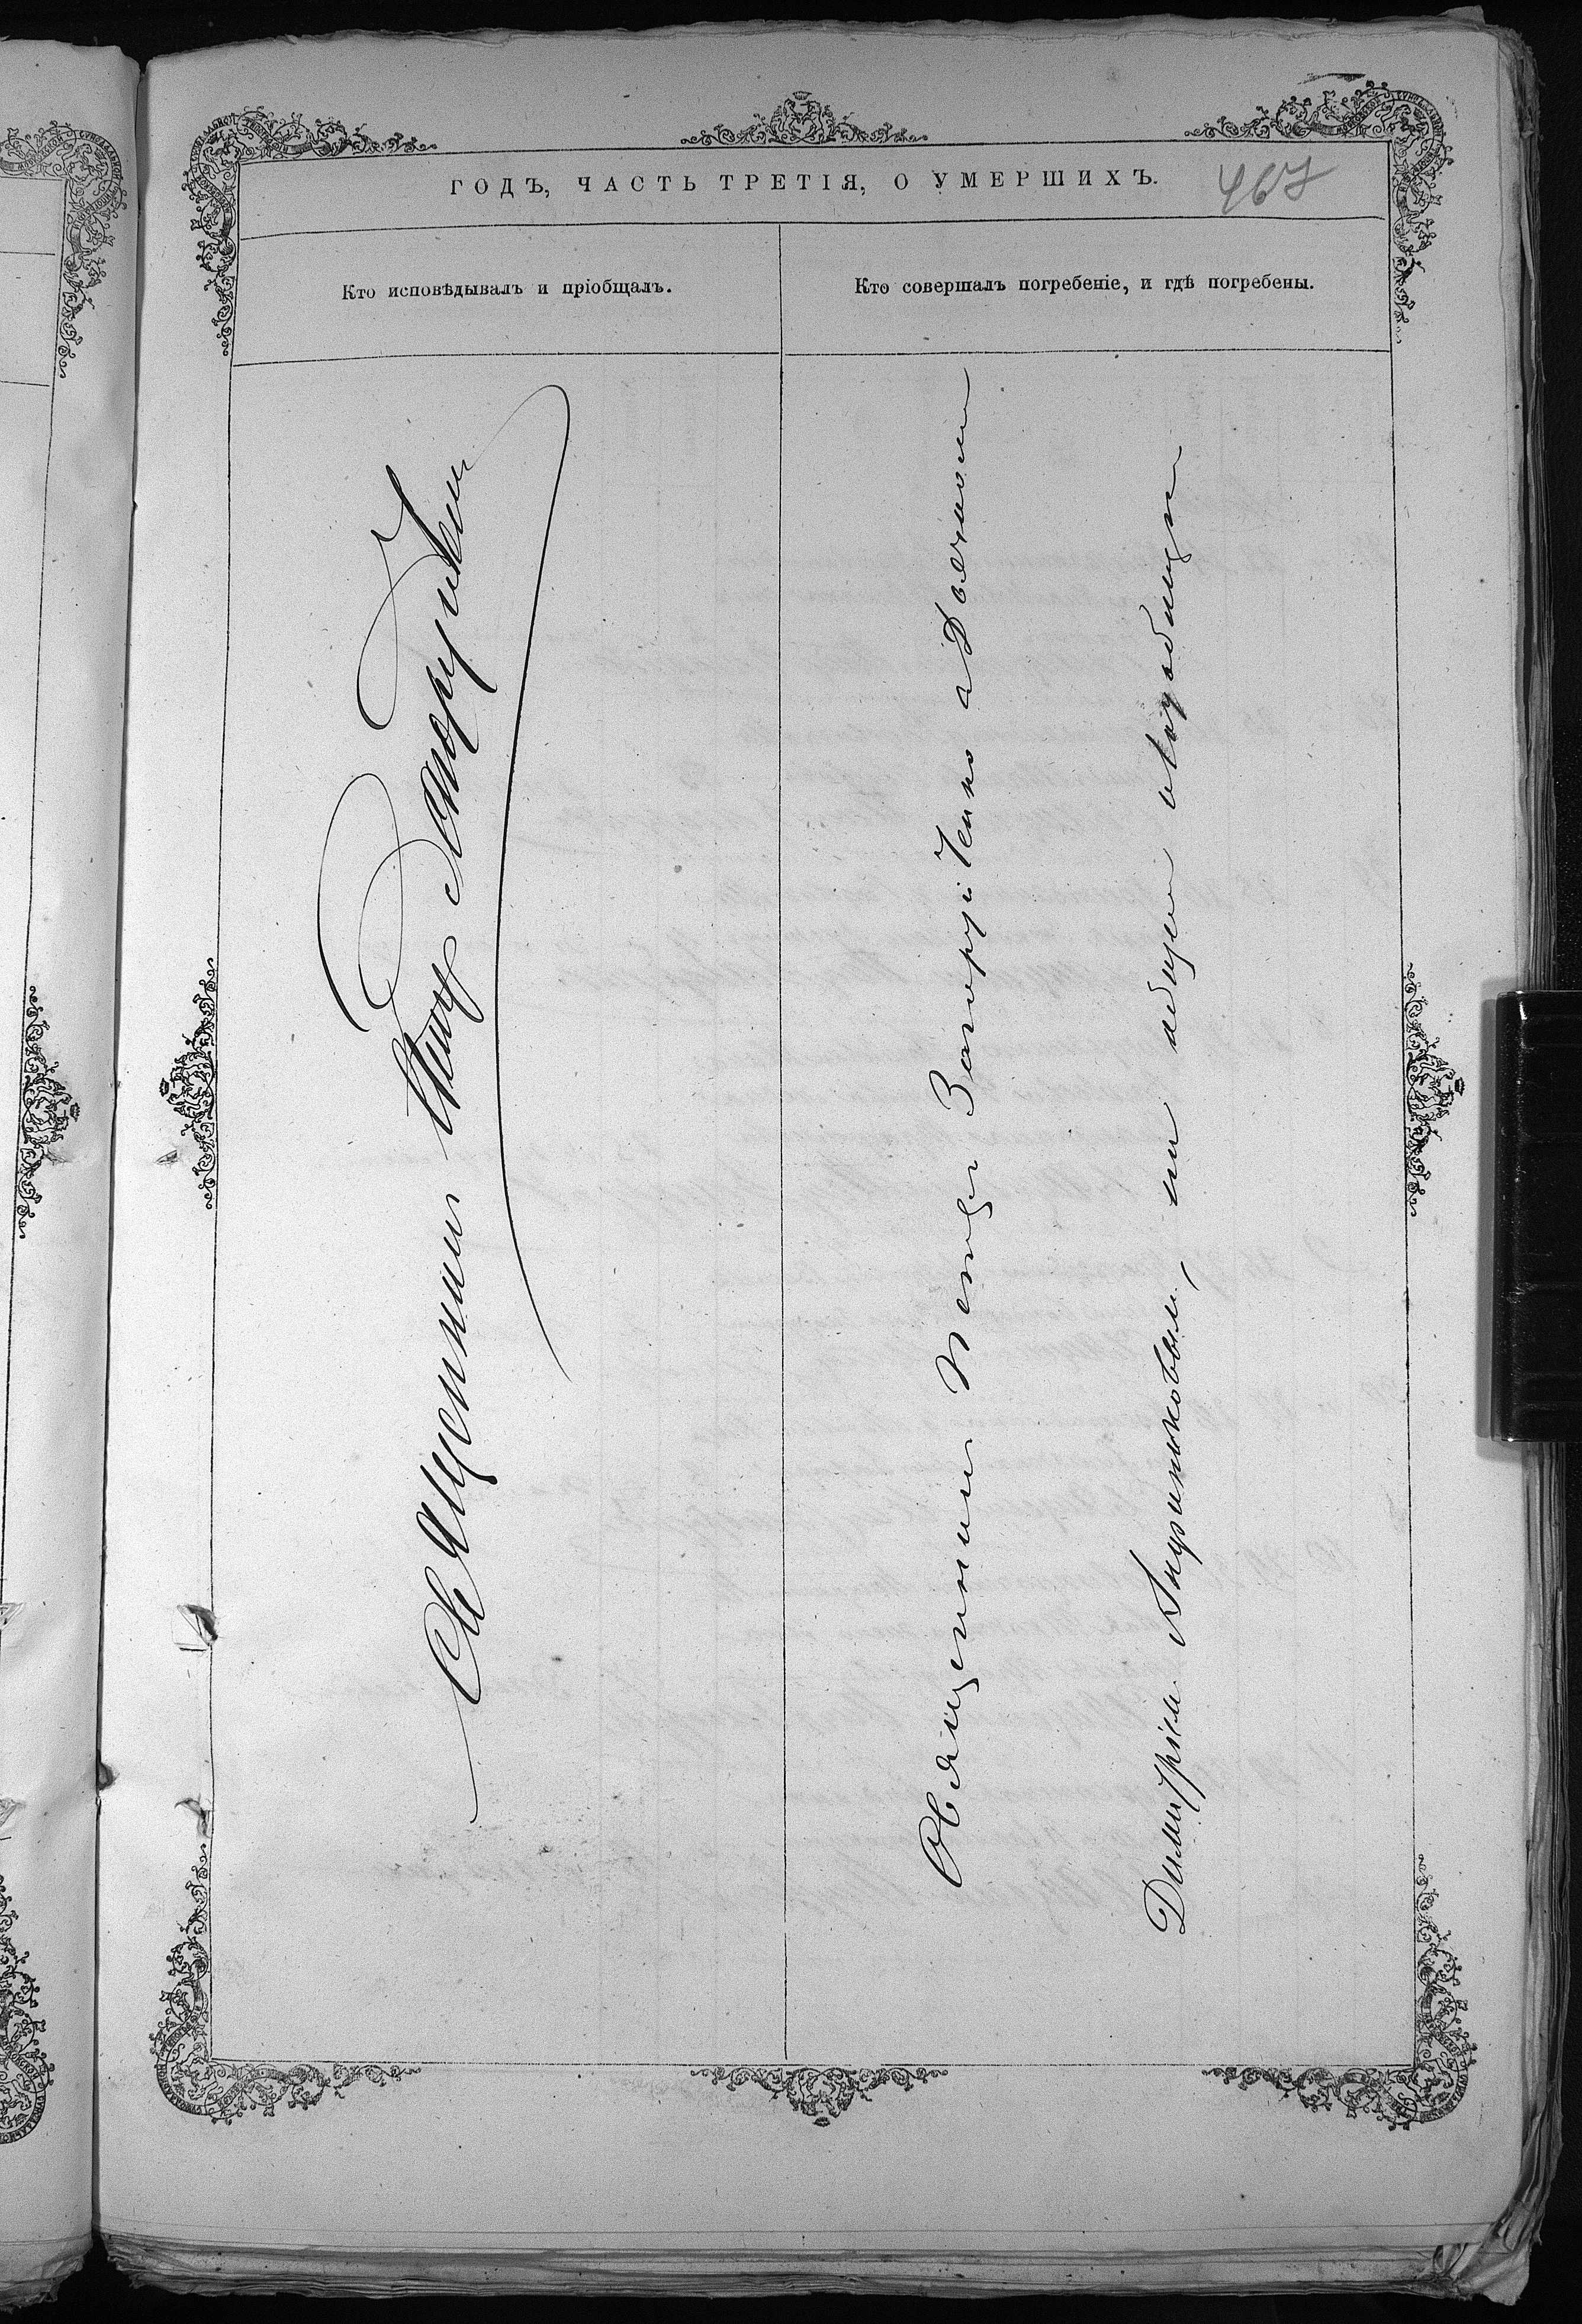 ГОДЪ, ЧАСТЬ ТРЕТІЯ, О УМЕРШИХЪ.
467
Кто исповѣдывалъ и пріобщалъ.
Кто совершалъ погребеніе, и гдѣ погребены.
Священникъ Петръ
Священникъ Петръ съ Дьячкомъ
Димитріемъ на общемъ кладбищѣ